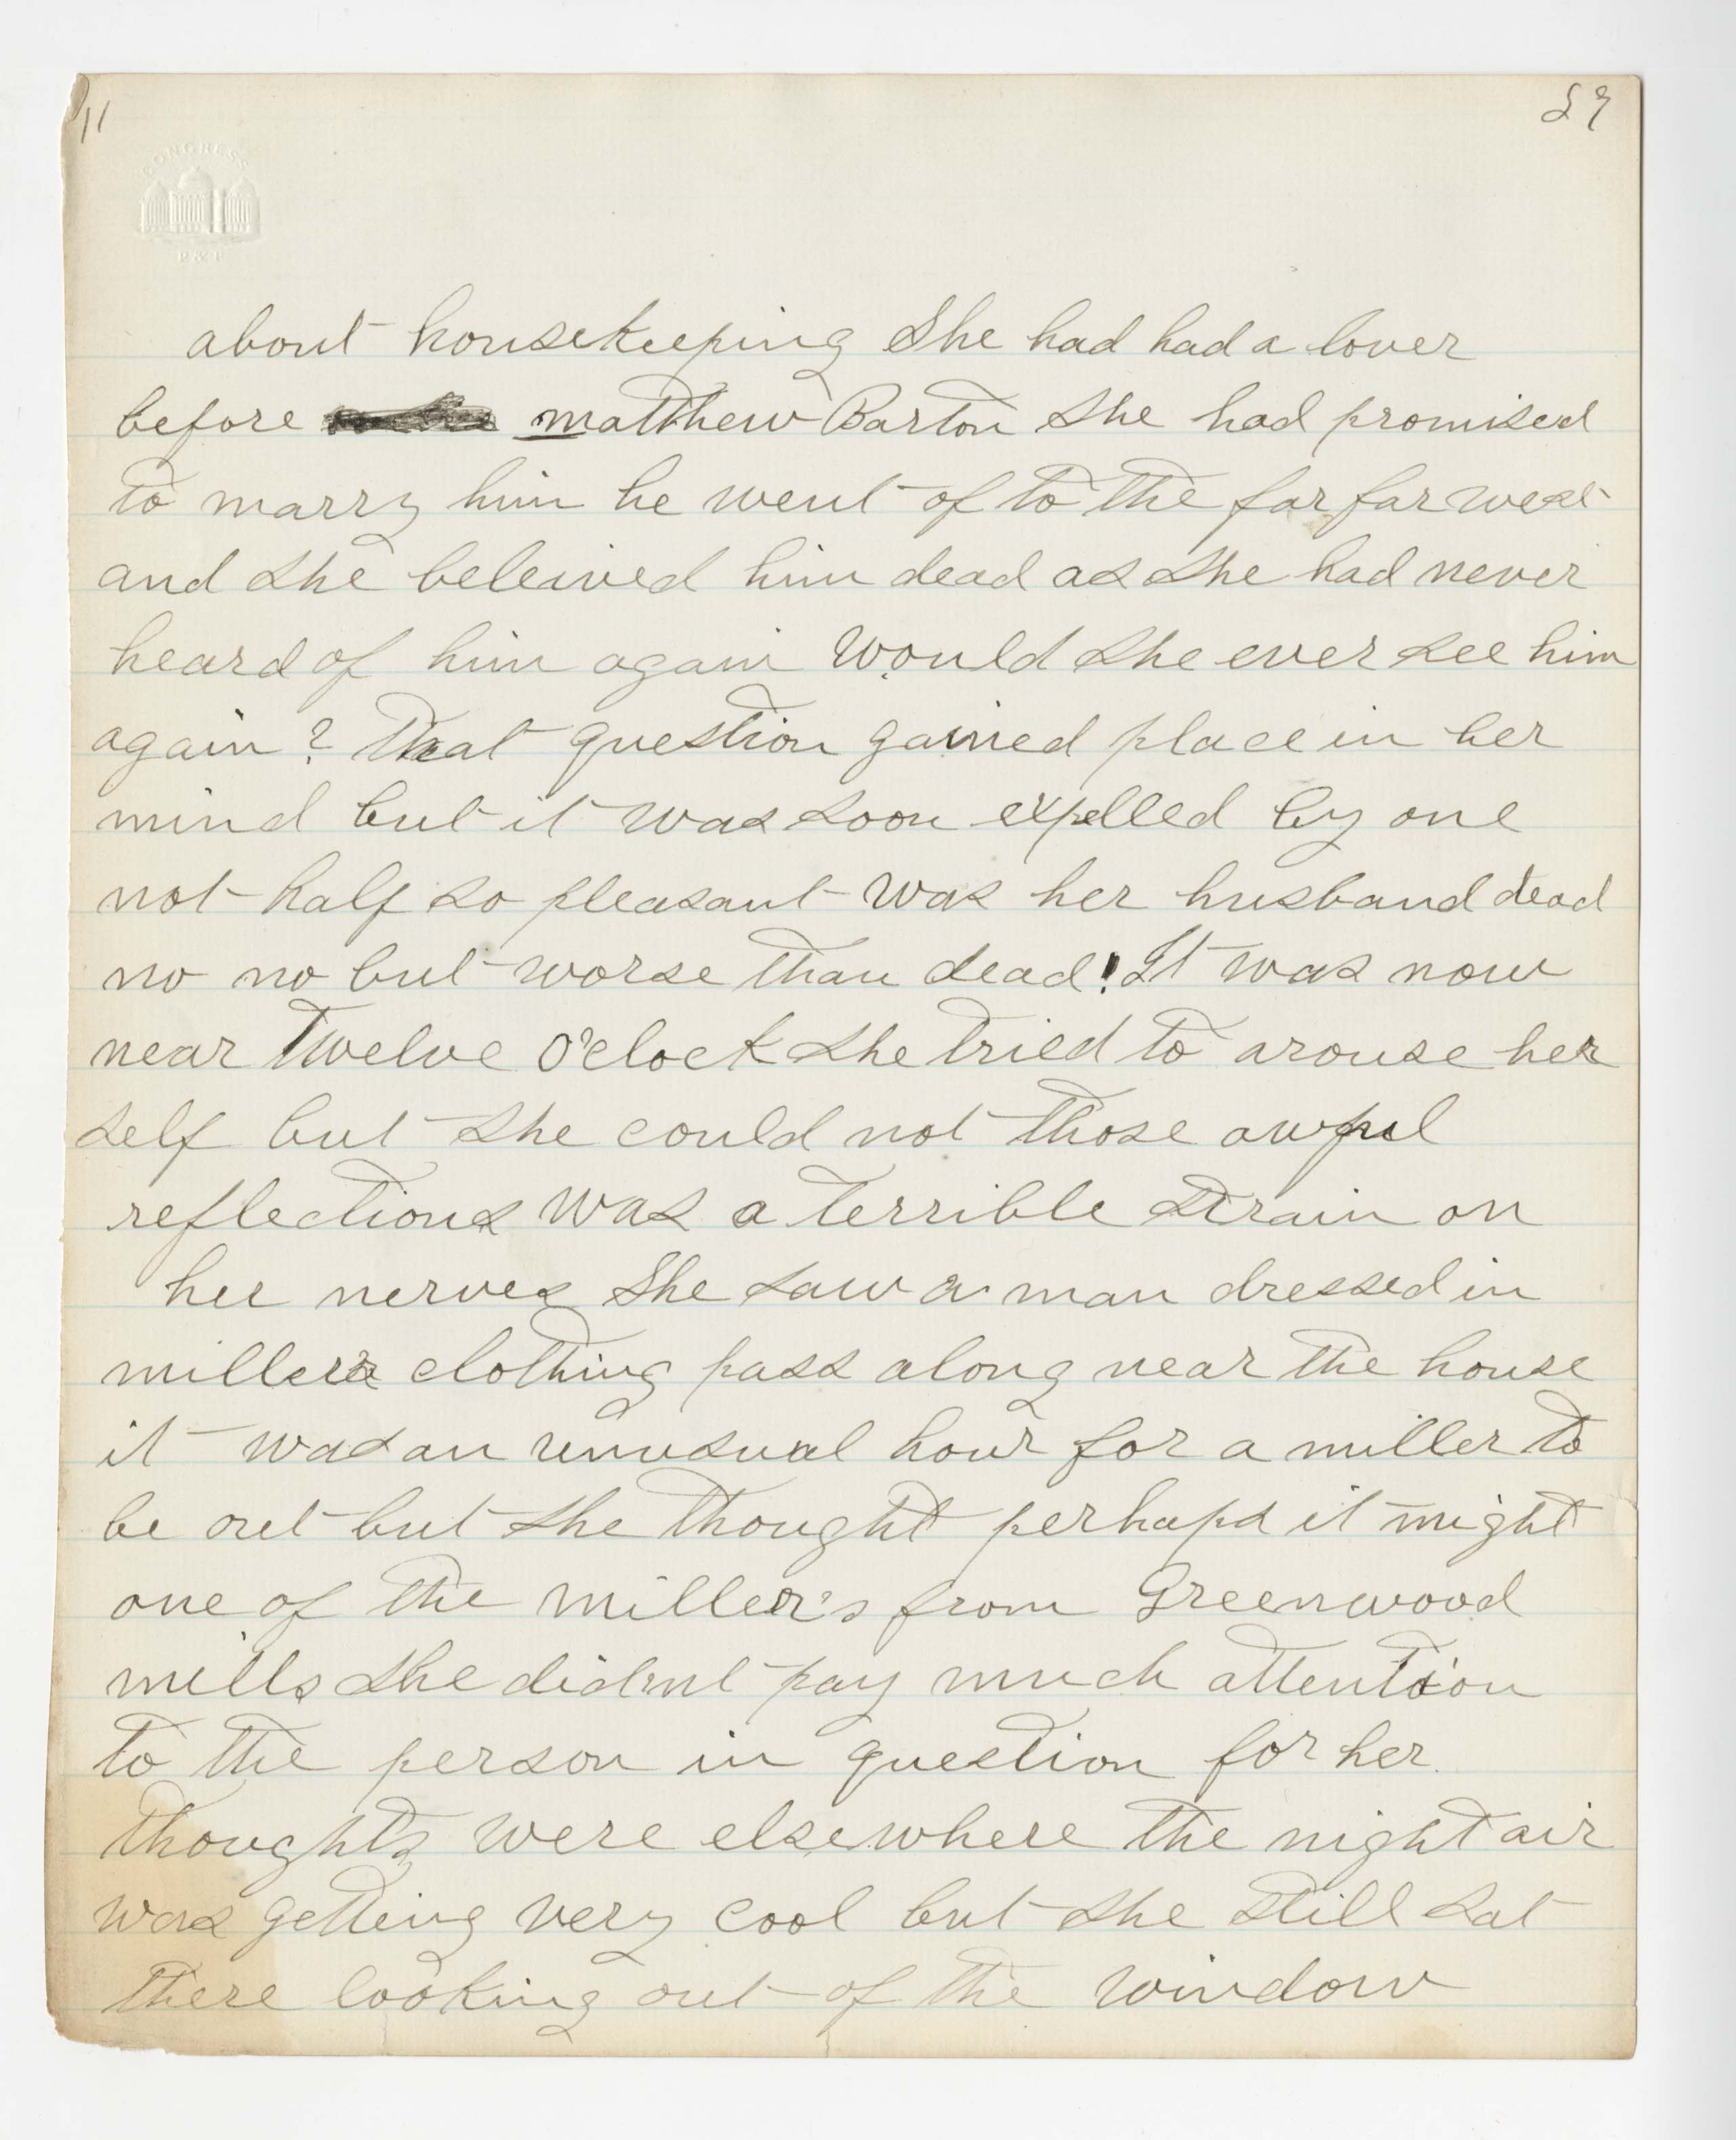 11
59
CONGRESS
P & P
about housekeeping She had had a lover
before matthew Barton she had promised
to marry him he went of to the far far west
and she beleived him dead as she had never
heard of him again would she ever see him
again? That question gained place in her
mind but it was soon expelled by one
not half so pleasant was her husband dead
no no but worse than dead! It was now
near Twelve O'clock she tried to arouse her
self but she could not those awful
reflections was a terrible strain on
her nerves She saw a man dressed in
millers clothing pass along near the house
it was an unusual hour for a miller to
be out but she thought perhaps it might
one of the miller's from Greenwood
mills she didnt pay much attention
to the person in question for her
thoughts were elsewhere the night air
was getting very cool but she still sat
there looking out of the window